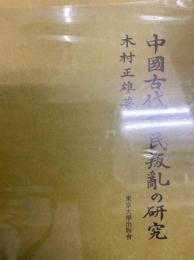 中國古代 民叛亂の硏究
木村正雄著
東京大學出版會